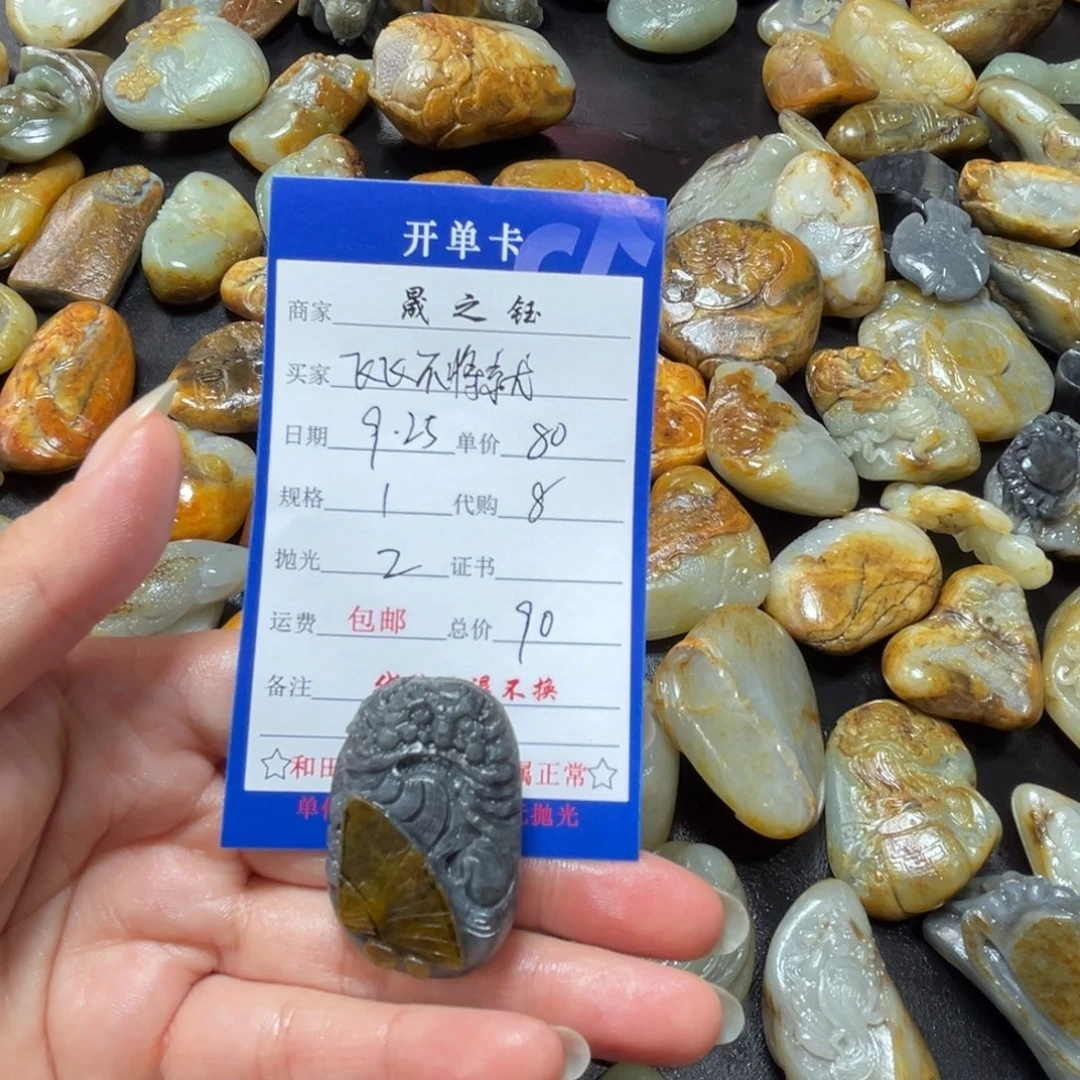 开单卡
商家 晟之钰
买家 飞飞不将就
日期 9.25 单价 80
规格 1 代购 8
抛光 2 证书
运费 包邮 总价 90
备注 不换
☆和田 属正常☆
单 抛光